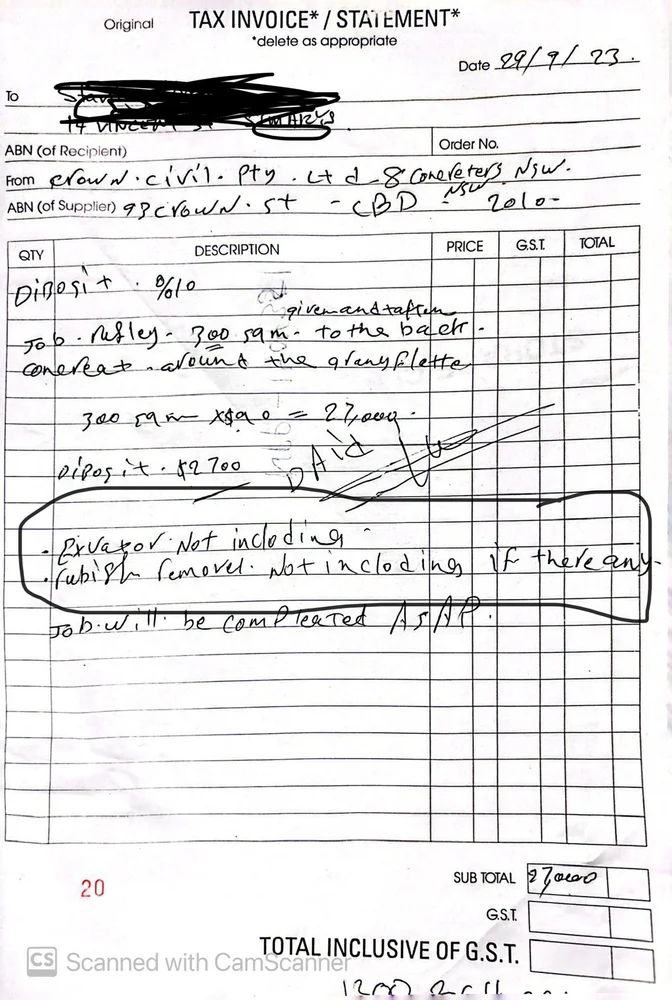 Original TAX INVOICE* / STATEMENT*
*delete as appropriate
Date 29/9/23.
To
ST MARYS
ABN (of Recipient) Order No.
From Crown. civil. Pty. Ltd - & Concreters NSW.
ABN (of Supplier) 93 crown. st - CBD - NSW 2010-
QTY DESCRIPTION PRICE G.S.T. TOTAL
DiBosit. %10
Job. 300 sqm. to the back.
concreat. around the granyflatte
300 sqm x $90 = 27,000.
DiBosit. $2700 PAid
. Exvator. Not incloding
. rubish removel. Not incloding if there any.
Job. will. be compleated ASAP.
SUB TOTAL 27,000
20
G.S.T.
TOTAL INCLUSIVE OF G.S.T.
CS Scanned with CamScanner